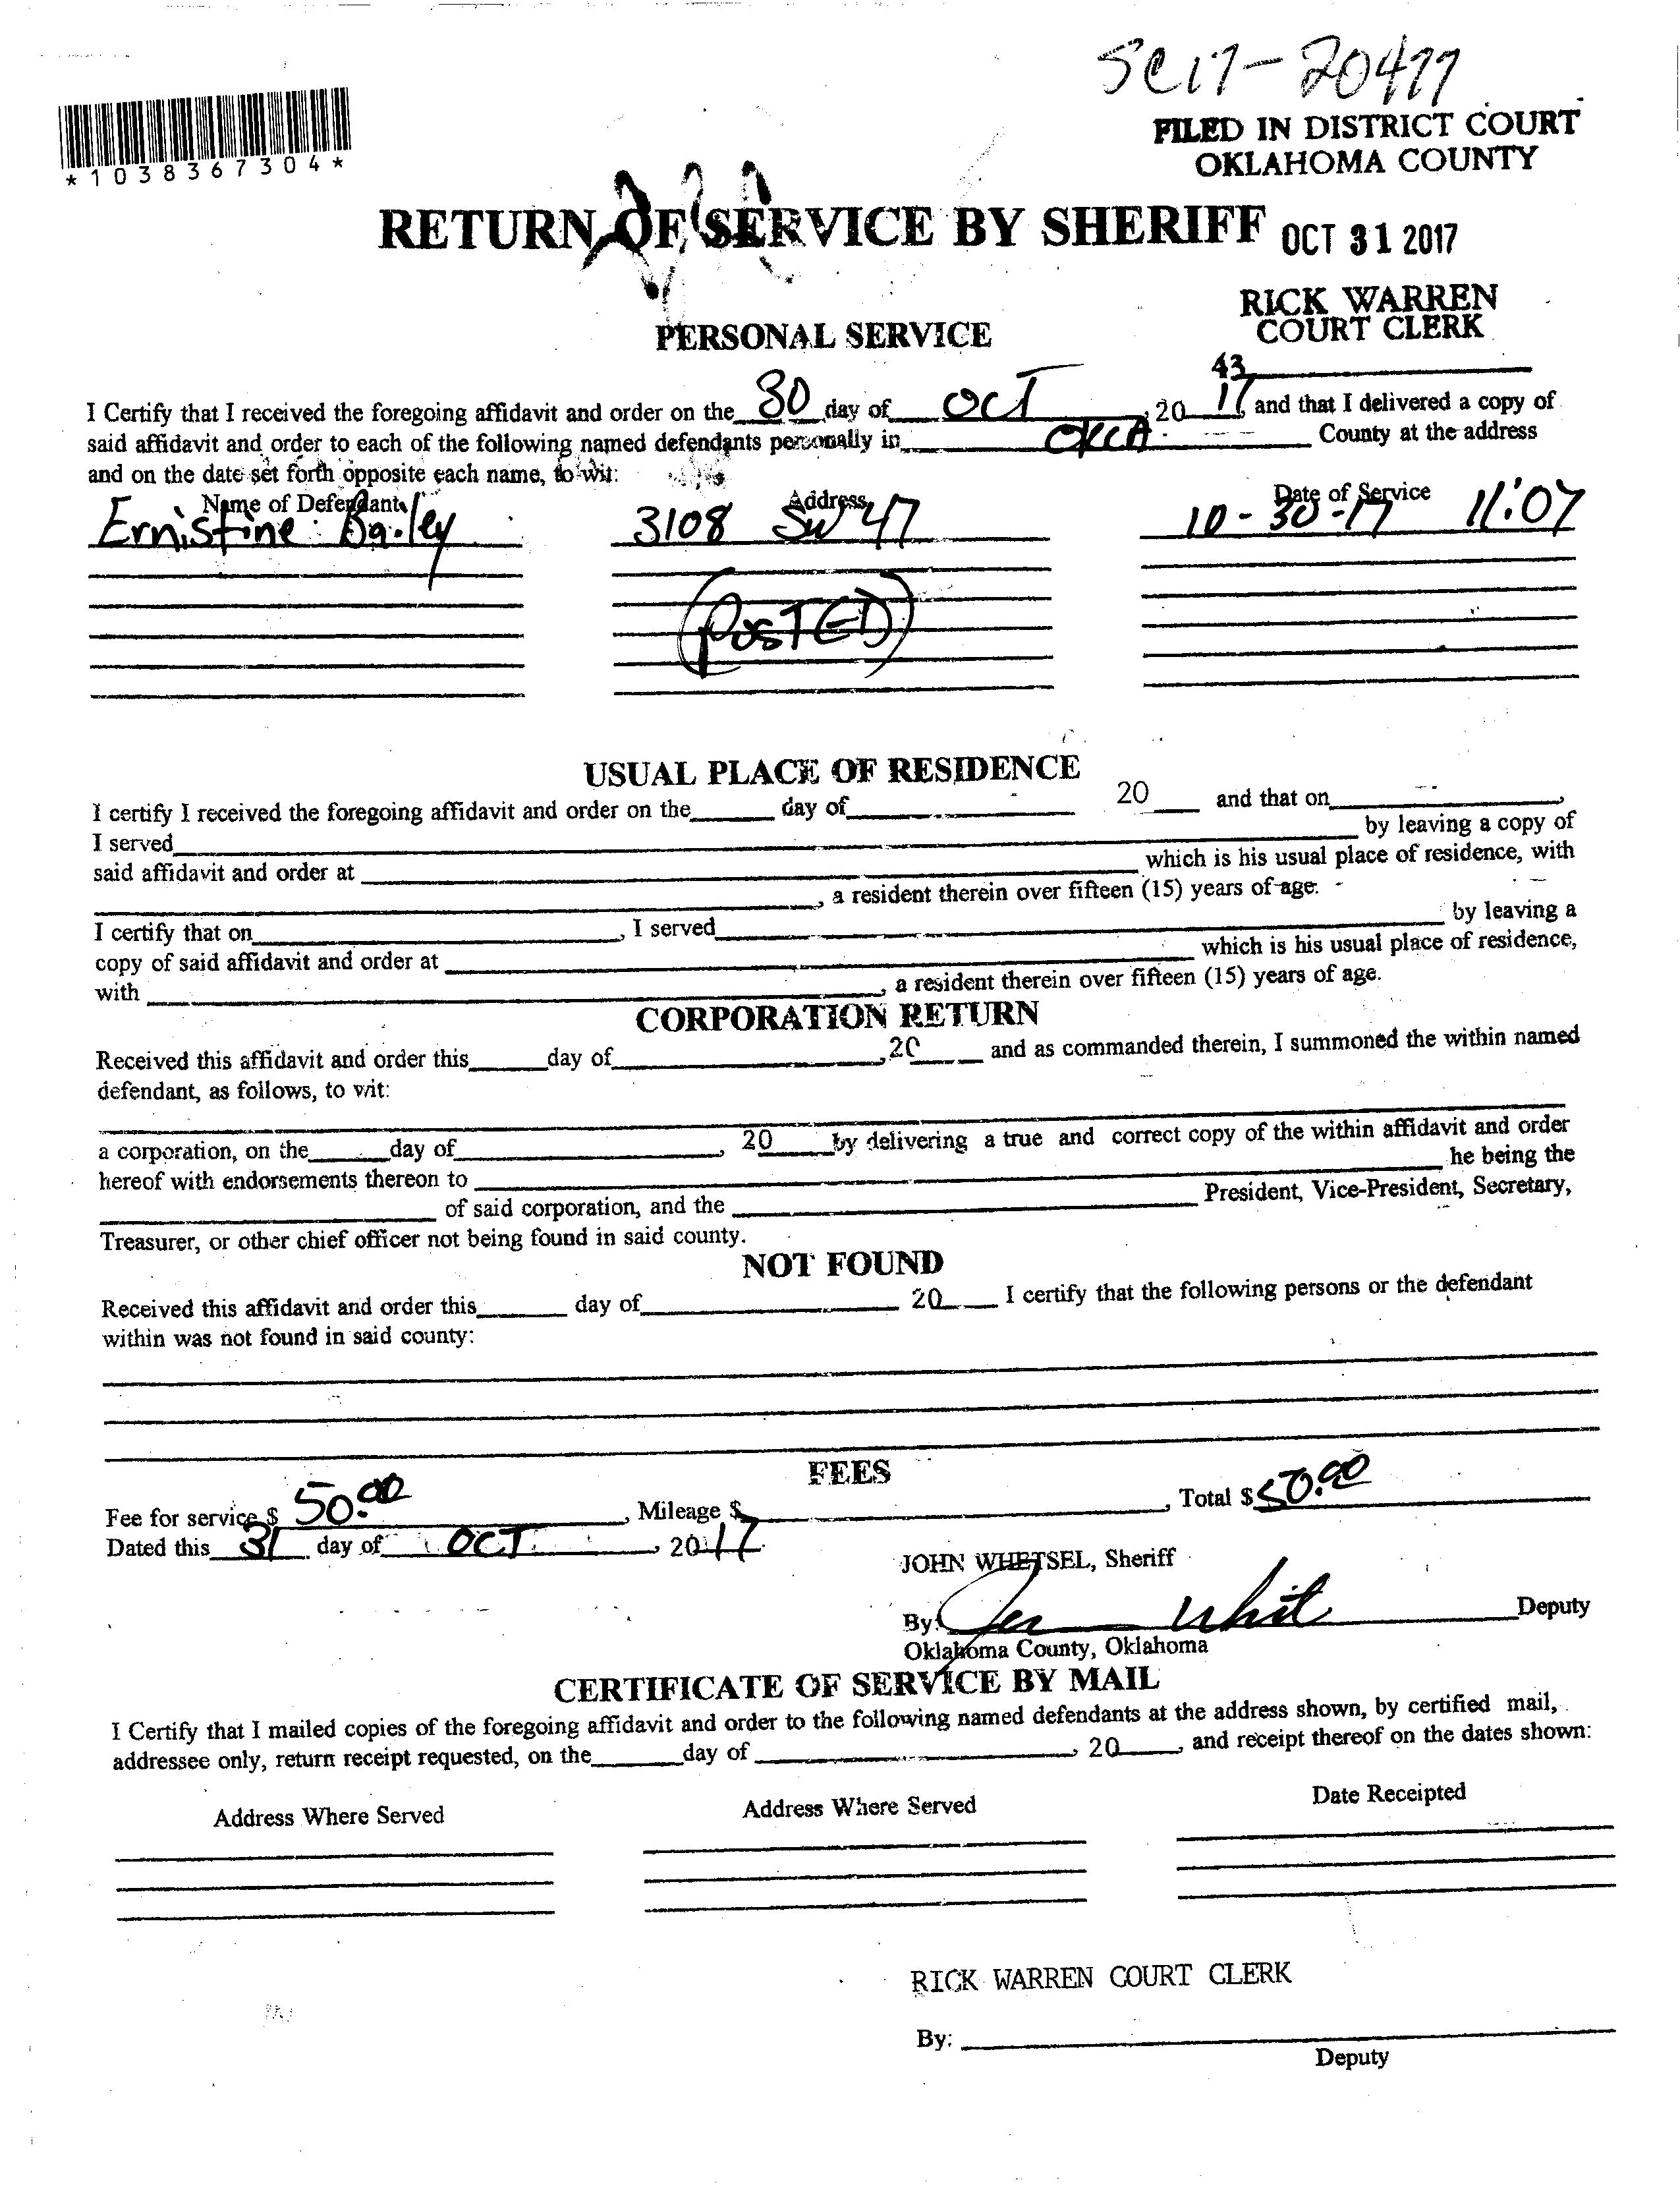 SC17-20477
FILED IN DISTRICT COURT
OKLAHOMA COUNTY
*1038367304*
RETURN OF SERVICE BY SHERIFF
OCT 31 2017
RICK WARREN
COURT CLERK
PERSONAL SERVICE
43
I Certify that I received the foregoing affidavit and order on the 30 day of OCT, 20 17, and that I delivered a copy of
said affidavit and order to each of the following named defendants personally in OKLA County at the address
and on the date set forth opposite each name, to wit:
Name of Defendant Address Date of Service
Ernistine Bailey 3108 SW 47 10-30-17 11:07
(POSTED)
USUAL PLACE OF RESIDENCE
I certify I received the foregoing affidavit and order on the day of 20 and that on ,
I served by leaving a copy of
said affidavit and order at which is his usual place of residence, with
, a resident therein over fifteen (15) years of age.
I certify that on , I served by leaving a
copy of said affidavit and order at which is his usual place of residence,
with , a resident therein over fifteen (15) years of age.
CORPORATION RETURN
Received this affidavit and order this day of , 20 and as commanded therein, I summoned the within named
defendant, as follows, to wit:
a corporation, on the day of , 20 by delivering a true and correct copy of the within affidavit and order
hereof with endorsements thereon to he being the
of said corporation, and the President, Vice-President, Secretary,
Treasurer, or other chief officer not being found in said county.
NOT FOUND
Received this affidavit and order this day of 20 I certify that the following persons or the defendant
within was not found in said county:
FEES
Fee for service $ 50.00, Mileage $ , Total $ 50.00
Dated this 31 day of OCT, 2017
JOHN WHETSEL, Sheriff
By: Deputy
Oklahoma County, Oklahoma
CERTIFICATE OF SERVICE BY MAIL
I Certify that I mailed copies of the foregoing affidavit and order to the following named defendants at the address shown, by certified mail,
addressee only, return receipt requested, on the day of , 20 , and receipt thereof on the dates shown:
Address Where Served Address Where Served Date Receipted
RICK WARREN COURT CLERK
By:
Deputy